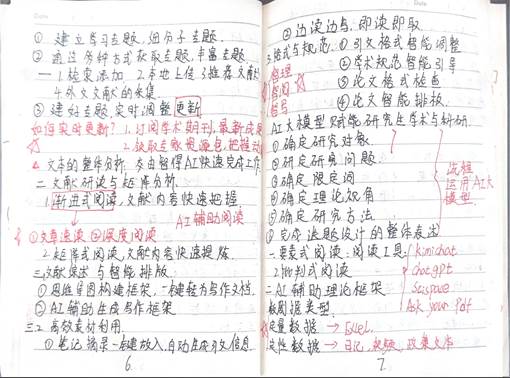 ① 建立学习专题，细分子专题
② 通过多种方式获取专题，丰富专题
一 1.检索添加 2.本地上传 3.推荐文献
4.外文文献的采集
③ 建好专题，实时调整更新
如何实时更新？1.订阅学术期刊，最新成果
2.获取专题资源包，把握动
文本的整体分析 AI快速完成工作
二.文献研读与矩阵分析
1.渐进式阅读，文献内容快速把握
AI辅助阅读
①文章速读 ②深度阅读
2.矩阵式阅读，文献内容快速提炼
三.文献综述与智能排版
①思维导图构建框架，一键转为写作文档
②AI辅助生成写作框架
三.2 高效素材利用
①笔记摘录一键放入，自动生成引文信息
6
② 边读边写，即读即取
3.格式与规范 ①引文格式智能调整
管理 ②学术规范智能引导
智阅 ③论文格式检查
④论文智能排版
AI大模型赋能研究生学术与科研
①确定研究对象
②研究研究问题
③确定限定词
④确定理论视角
⑤确定研究方法
流程
运用AI大
模型
⑥完成选题设计的整体表达
一.要素式阅读：阅读工具 kimichat
2.批判式阅读 chatgpt
二AI辅助理论框架 Scispace
数据类型 Ask your Pdf
定量数据 → Excel
定性数据 → 日记、视频、政策文本
7